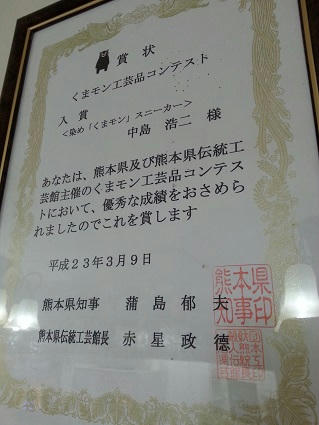 賞状
くまモン工芸品コンテスト
入賞
<染め「くまモン」スニーカー>
中島 浩二 様
あなたは、熊本県及び熊本県伝統工
芸館主催のくまモン工芸品コンテス
トにおいて、優秀な成績をおさめら
れましたのでこれを賞します
平成23年3月9日
熊本県知事 蒲島郁夫
熊本県伝統工芸館長 赤星政德
熊本県
知事印